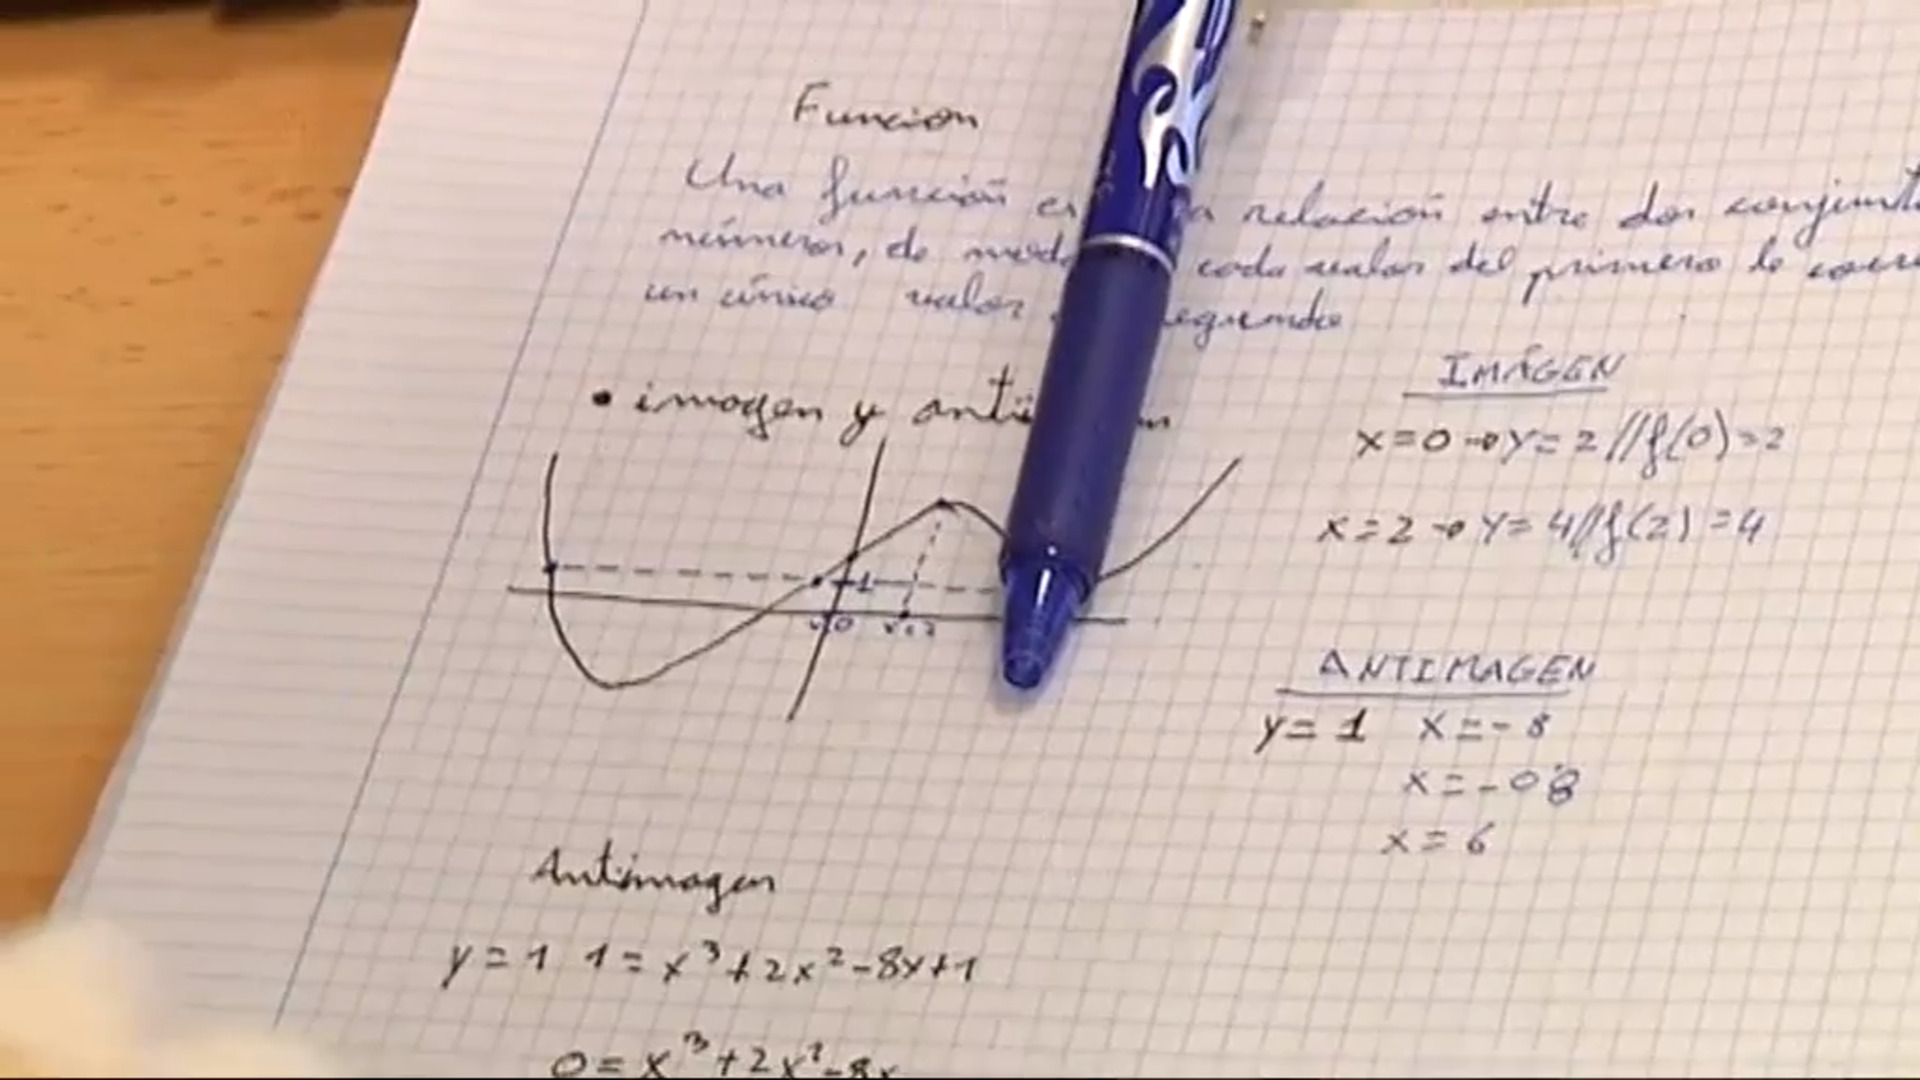 Función
Una función es relación entre dos conjunt
números, de cada valor del primero le corre
un único valor
• imagen y
1
x=0 x=2
IMÁGEN
x=0 → y=2 // f(0)=2
x=2 → y=4 // f(2)=4
ANTIMAGEN
y=1 x=-8
x=-0'8
x=6
Antimagen
y=1 1=x³+2x²-8x+1
0=x³+2x²-8x